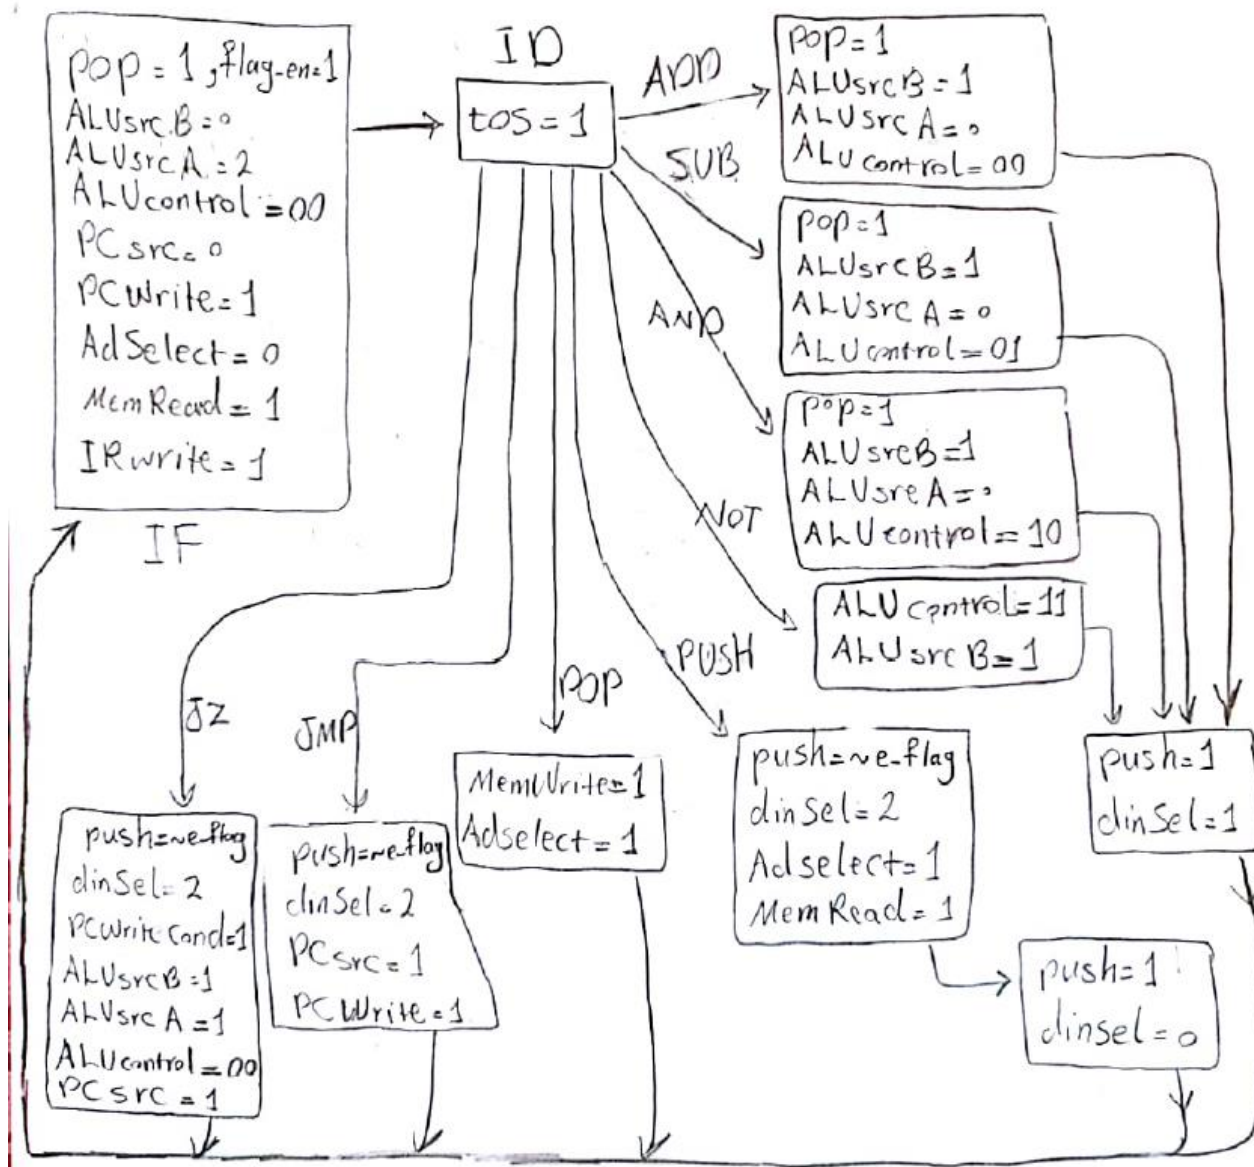 pop = 1 , flag-en=1
ALUsrcB = 0
ALUsrcA = 2
ALUcontrol = 00
PCsrc = 0
PCWrite = 1
AdSelect = 0
MemRead = 1
IRwrite = 1
IF
ID
tos = 1
ADD
SUB
AND
NOT
PUSH
POP
JMP
JZ
pop = 1
ALUsrcB = 1
ALUsrcA = 0
ALUcontrol = 00
pop = 1
ALUsrcB = 1
ALUsrcA = 0
ALUcontrol = 01
pop = 1
ALUsrcB = 1
ALUsrcA = 0
ALUcontrol = 10
ALUcontrol = 11
ALUsrcB = 1
push = 1
dinSel = 1
push=~e-flag
dinSel = 2
Adselect = 1
MemRead = 1
push = 1
dinsel = 0
MemWrite = 1
Adselect = 1
push=~e-flag
dinSel = 2
PCsrc = 1
PCWrite = 1
push=~e-flag
dinSel = 2
PCWriteCond=1
ALUsrcB = 1
ALUsrcA = 1
ALUcontrol = 00
PCsrc = 1